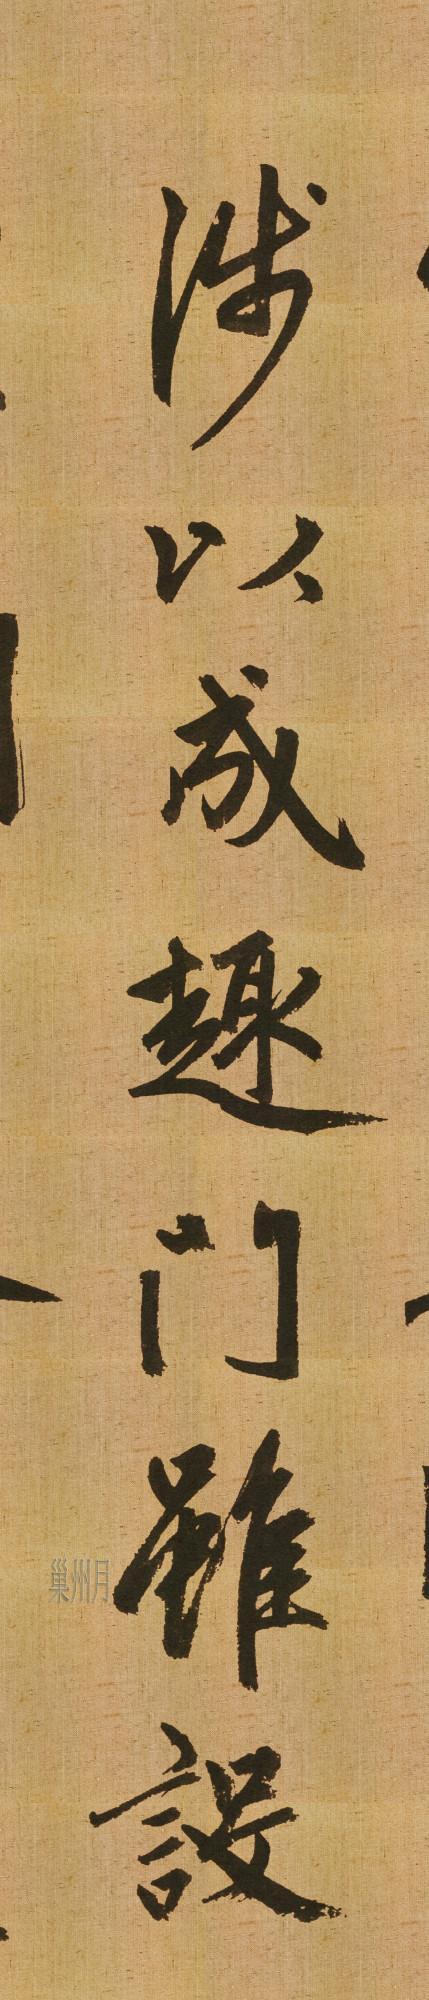 涉以成趣门雖設
巢州月